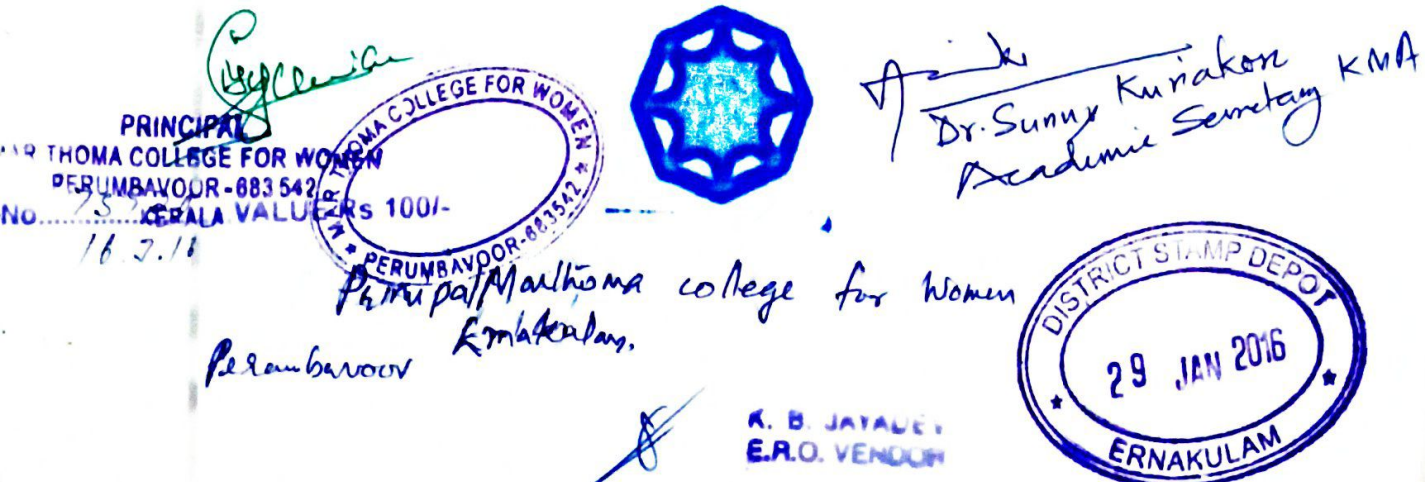 PRINCIPAL
MAR THOMA COLLEGE FOR WOMEN
PERUMBAVOOR-683 542
KERALA
No. VALUE Rs 100/-
MAR THOMA COLLEGE FOR WOMEN
PERUMBAVOOR-683542
Dr. Sunny Kuriakose
Academic Secretary KMA
Principal Marthoma college for Women
Ernakulam.
Perumbavoor
K. B. JAYADEV
E.R.O. VENDOR
DISTRICT STAMP DEPOT
29 JAN 2016
ERNAKULAM